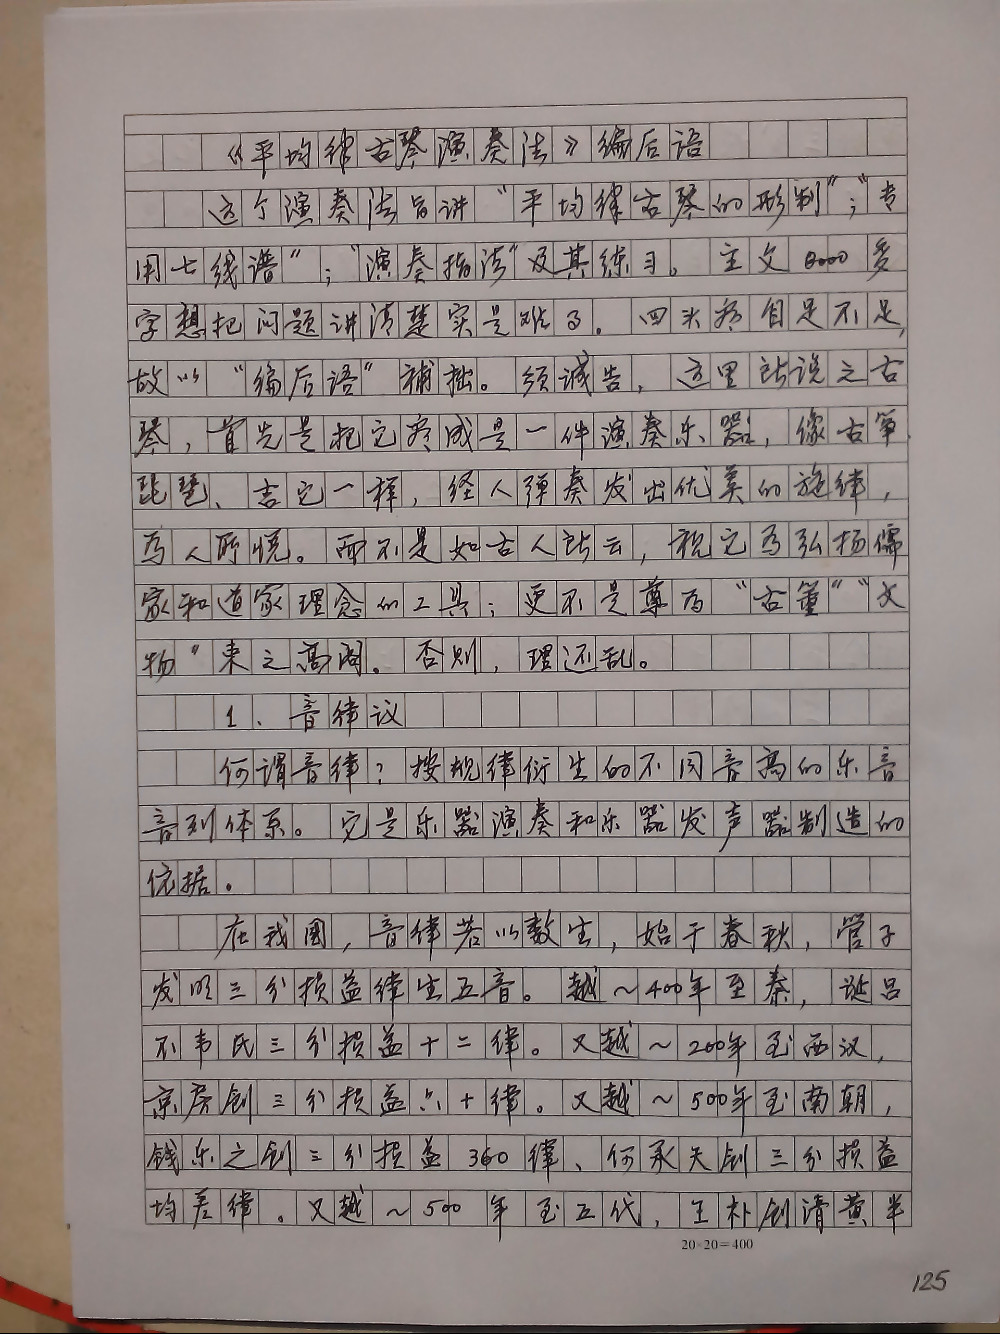 《平均律古琴演奏法》编后语
这个演奏法旨讲“平均律古琴的形制”；“专
用七线谱”；“演奏指法”及其练习。主文8000多
字想把问题讲清楚实是难了。回头看自是不足，
故以“编后语”补拙。须诚告，这里所说之古
琴，首先是把它看成是一件演奏乐器，像古筝
琵琶、吉它一样，经人弹奏发出优美的旋律，
为人所悦。而不是如古人所云，视它为弘扬儒
家和道家理念的工具；更不是尊为“古董”“文
物”束之高阁。否则，理还乱。
1、音律议
何谓音律？按规律衍生的不同音高的乐音
音列体系。它是乐器演奏和乐器发声器制造的
依据。
在我國，音律若以数生，始于春秋，管子
发明三分损益律生五音。越～400年至秦，诞吕
不韦氏三分损益十二律。又越～200年至西汉，
京房创三分损益六十律。又越～500年至南朝，
钱乐之创三分损益360律、何承天创三分损益
均差律。又越～500年至五代，王朴创清黄半
20×20=400
125